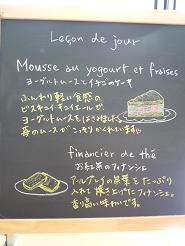 Leçon de jour
Mousse au yogourt et fraises
ヨーグルトムースとイチゴのケーキ
ふんわり軽い食感の
ビスキュイ・オ・ショコラで
ヨーグルトムースをはさみました。
苺のムースがこっそりかくれています♡
financier de thé
お紅茶のフィナンシェ
アールグレイの茶葉をたっぷり
入れて焼き上げたフィナンシェ。
香り高い味わいです。